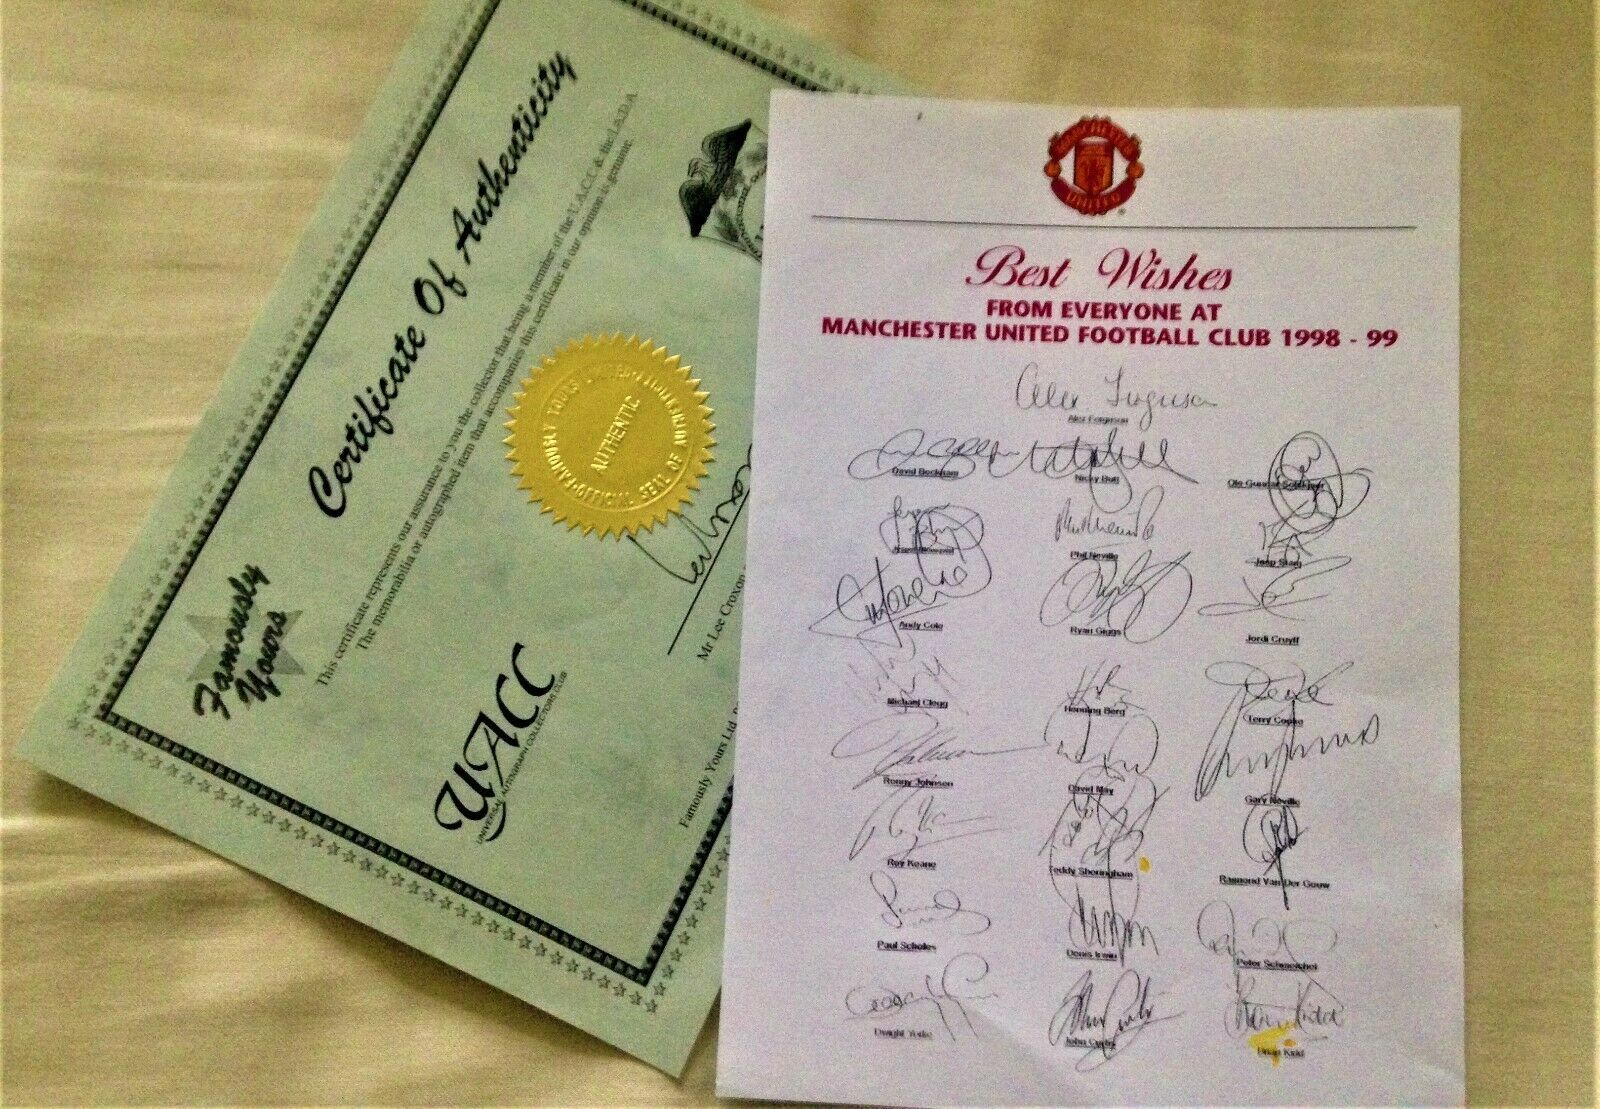 Certificate Of Authenticity
This certificate represents our assurance to you the collector that being a member of the U.A.C.C & the I.A.D.A
The memorabilia or autographed item that accompanies this certificate in our opinion is genuine.
Famously
Yours
UACC
UNIVERSAL AUTOGRAPH COLLECTORS CLUB
OFFICIAL SEAL OF AUTHENTICITY
FAMOUSLY YOURS
AUTHENTIC
Mr Lee Croxon
Famously Yours Ltd,
MANCHESTER
UNITED
Best Wishes
FROM EVERYONE AT
MANCHESTER UNITED FOOTBALL CLUB 1998 - 99
Alex Ferguson
Alex Ferguson
David Beckham
Nicky Butt
Ole Gunnar Solskjaer
Phil Neville
Jaap Stam
Andy Cole
Ryan Giggs
Jordi Cruyff
Michael Clegg
Henning Berg
Terry Cooke
Ronny Johnson
David May
Gary Neville
Roy Keane
Teddy Sheringham
Raimond Van Der Gouw
Paul Scholes
Denis Irwin
Peter Schmeichel
Dwight Yorke
John Curtis
Brian Kidd
Brian Kidd